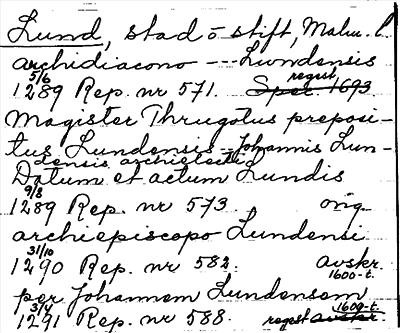 Lund, stad o stift, Malm. l.
archidiacono --- Lundensis
5/6 regest
1289 Rep. nr 571. Spec 1693
Magister Thrugotus preposi-
tus Lundensis -- Johannis Lun-
densis archielecti
Datum et actum Lundis
9/8
1289 Rep. nr 573. orig.
archiepiscopo Lundensi
31/10
1290 Rep. nr 582. avskr.
1600-t.
per Johannem Lundensem
3/4 1600-t.
1291 Rep. nr 588. regest avskr.